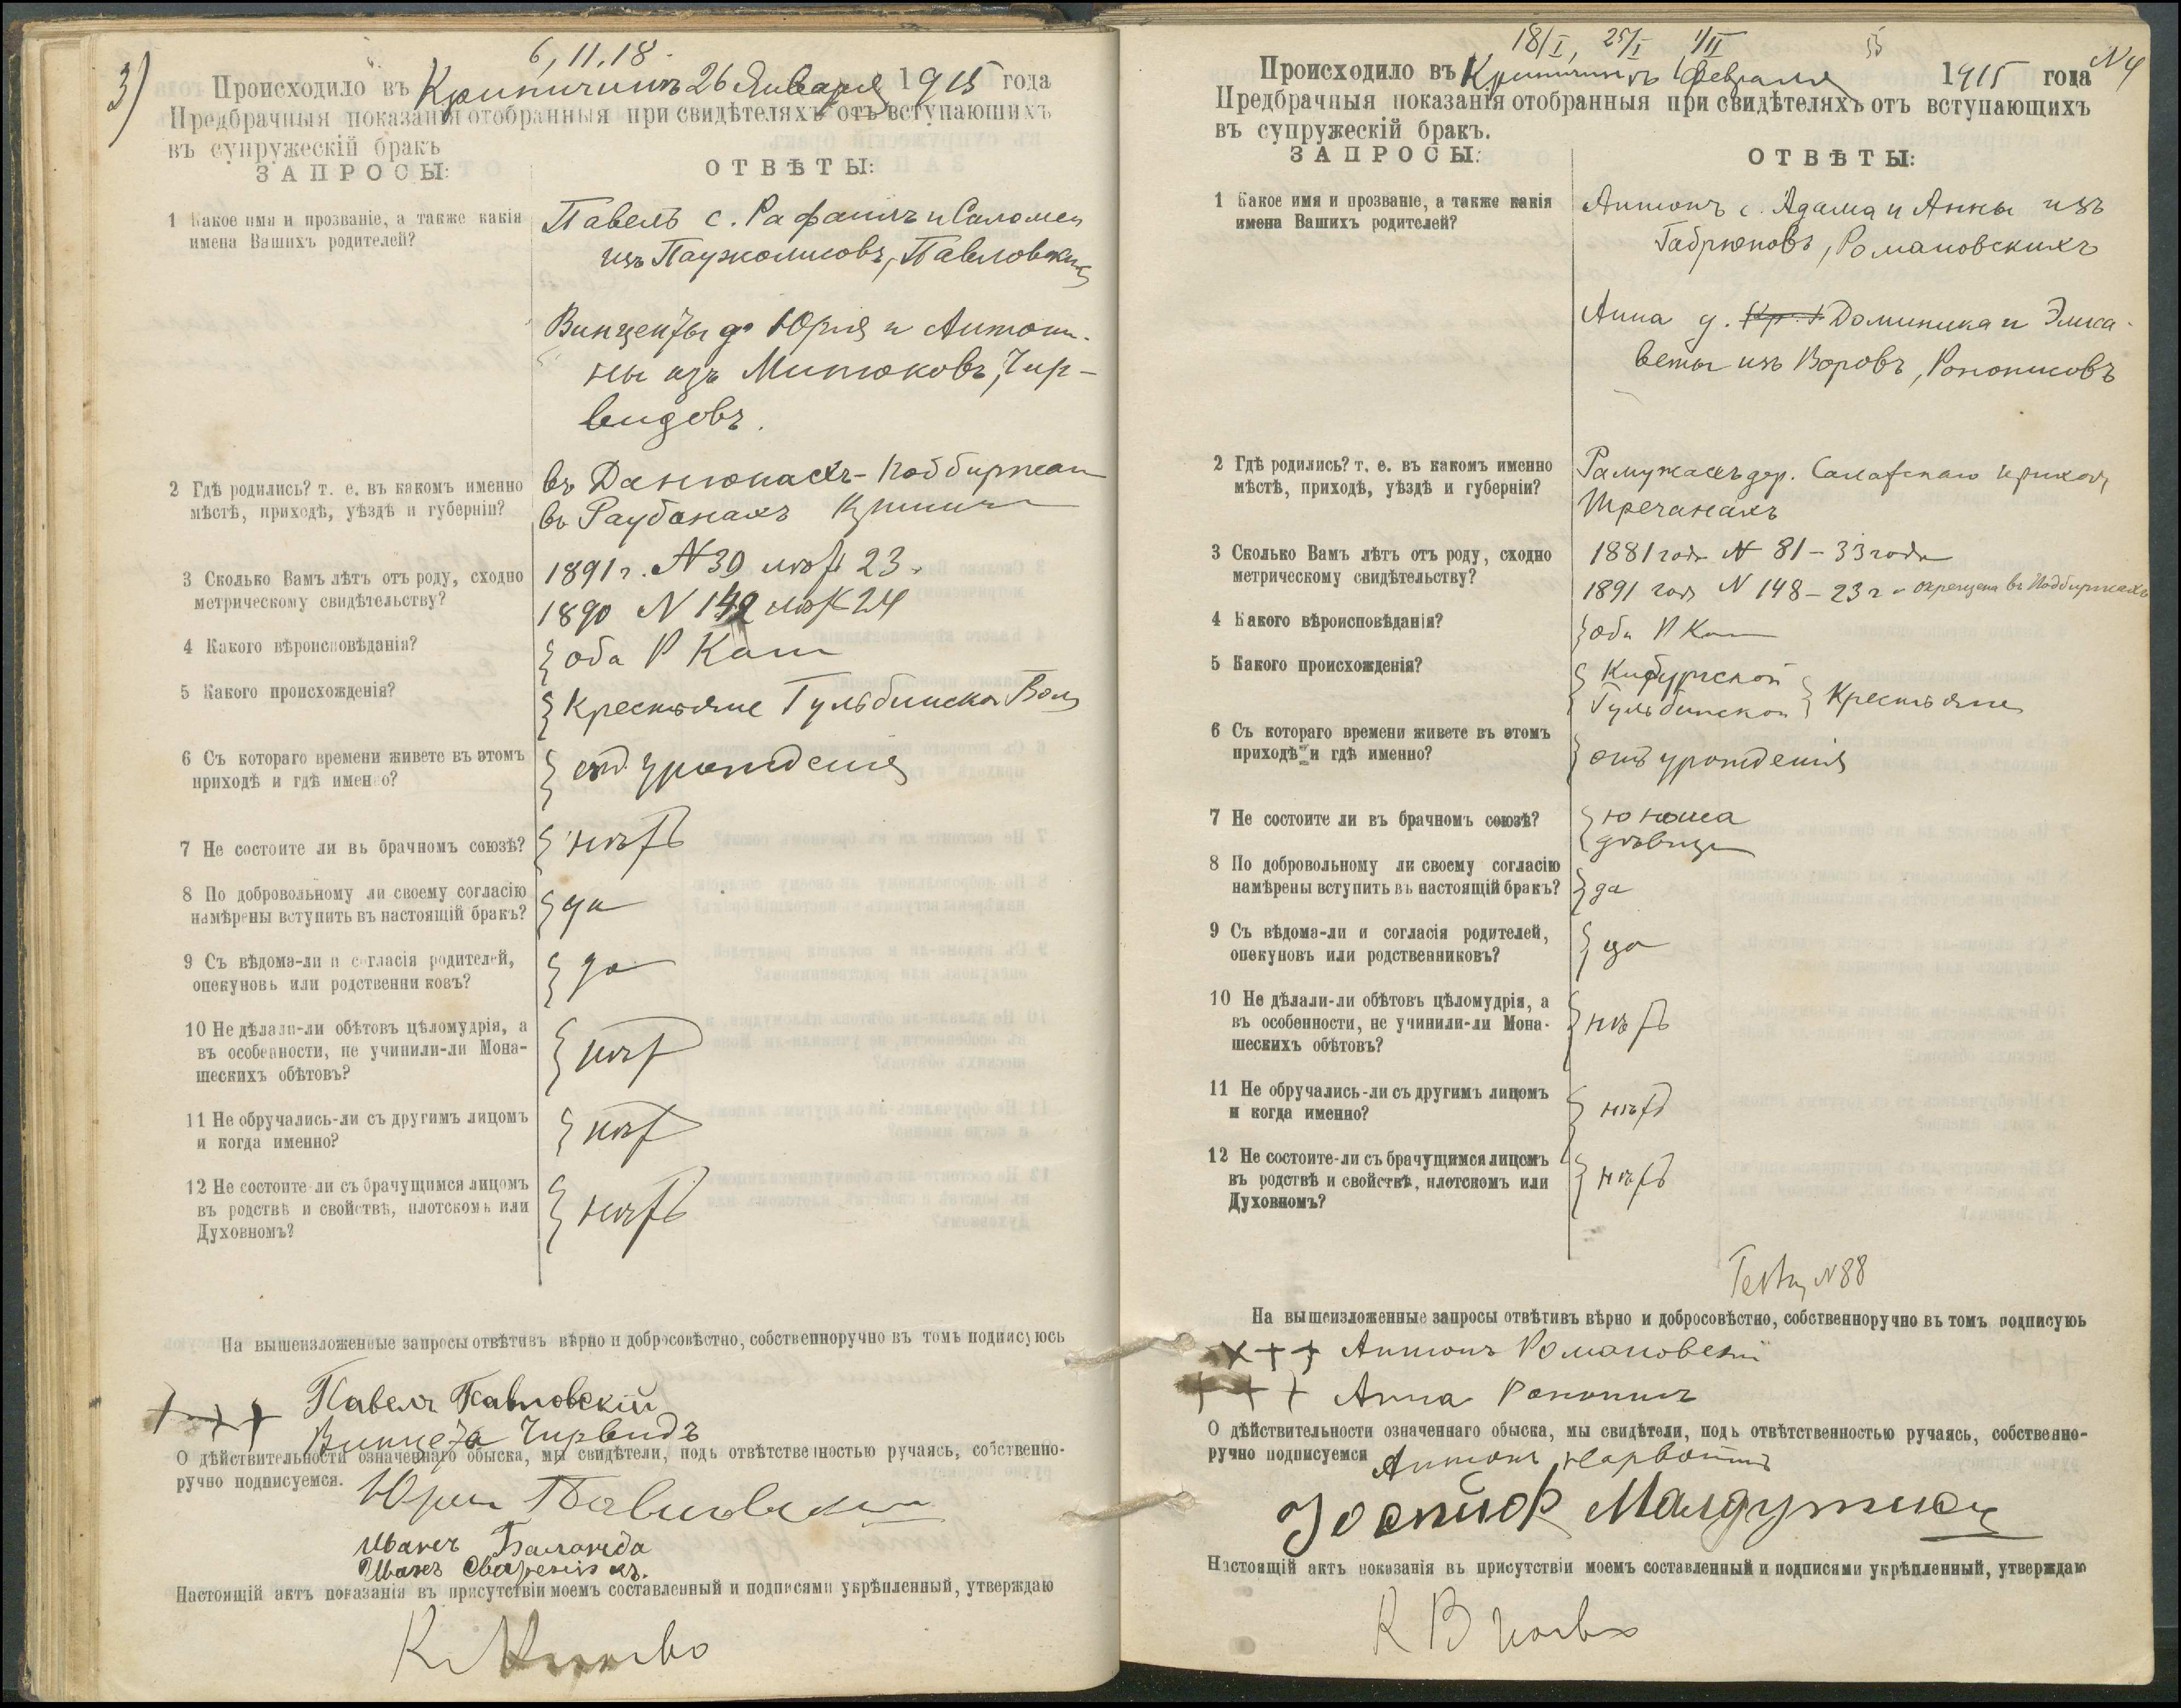 3)
6, 11, 18
Происходило въ Крипичинъ 26 Января 1915 года
Предбрачныя показанія отобранныя при свидѣтеляхъ отъ вступающихъ
въ супружескій бракъ
ЗАПРОСЫ:
ОТВѢТЫ:
1 Какое имя и прозваніе, а также какія
имена Вашихъ родителей?
Павелъ с. Рафаилъ и Саломеи
изъ , Павловскихъ
Винценты д. Юрія и Антони-
ны изъ Митюковъ, Чир-
видовъ.
2 Гдѣ родились? т. е. въ какомъ именно
мѣстѣ, приходѣ, уѣздѣ и губерніи?
въ Данюнасъ - Поббиржан
въ Раубанахъ
3 Сколько Вамъ лѣтъ отъ роду, сходно
метрическому свидѣтельству?
1891 г. N 39 лѣт 23.
1890 N 142 лѣт 24
4 Какого вѣроисповѣданія?
оба Р Кат
5 Какого происхожденія?
Крестьяне Гульбинской Вол
6 Съ котораго времени живете въ этомъ
приходѣ и гдѣ именно?
отъ урожденія
7 Не состоите ли въ брачномъ союзѣ?
нѣтъ
8 По добровольному ли своему согласію
намѣрены вступить въ настоящій бракъ?
да
9 Съ вѣдома-ли и согласія родителей,
опекуновъ или родственниковъ?
да
10 Не дѣлали-ли обѣтовъ цѣломудрія, а
въ особенности, не учинили-ли Мона-
шескихъ обѣтовъ?
нѣт
11 Не обручались-ли съ другимъ лицомъ
и когда именно?
нѣт
12 Не состоите-ли съ брачущимся лицомъ
въ родствѣ и свойствѣ, плотскомъ или
Духовномъ?
нѣтъ
На вышеизложенные запросы отвѣтивъ вѣрно и добросовѣстно, собственноручно въ томъ подписуюсь
+++ Павелъ Павловскій
Винцента Чирвидъ
О дѣйствительности означеннаго обыска, мы свидѣтели, подъ отвѣтственностью ручаясь, собственно-
ручно подписуемся.
Юрій Павловскій
Иванъ Баландa
Иванъ
Настоящій актъ показанія въ присутствіи моемъ составленный и подписями укрѣпленный, утверждаю
18/I, 25/I 1/II
55
N 4
Происходило въ Крипичинъ 1 Февраля 1915 года
Предбрачныя показанія отобранныя при свидѣтеляхъ отъ вступающихъ
въ супружескій бракъ.
ЗАПРОСЫ:
ОТВѢТЫ:
1 Какое имя и прозваніе, а также какія
имена Вашихъ родителей?
Антонъ с. Адама и Анны изъ
Габрюновъ, Романовскихъ
Анна д. Доминика и Элиса-
веты изъ Воровъ, Рономисовъ
2 Гдѣ родились? т. е. въ какомъ именно
мѣстѣ, приходѣ, уѣздѣ и губерніи?
Рамужахъ дер. Салатскаго приход
Тречанахъ
3 Сколько Вамъ лѣтъ отъ роду, сходно
метрическому свидѣтельству?
1881 года N 81 - 33 года
1891 год N 148 - 23 г - окрещена въ Поббиржахъ
4 Какого вѣроисповѣданія?
оба Р Кат
5 Какого происхожденія?
Гульбинской
Крестьяне
6 Съ котораго времени живете въ этомъ
приходѣ и гдѣ именно?
отъ урожденія
7 Не состоите ли въ брачномъ союзѣ?
юноша
дѣвица
8 По добровольному ли своему согласію
намѣрены вступить въ настоящій бракъ?
да
9 Съ вѣдома-ли и согласія родителей,
опекуновъ или родственниковъ?
да
10 Не дѣлали-ли обѣтовъ цѣломудрія, а
въ особенности, не учинили-ли Мона-
шескихъ обѣтовъ?
нѣтъ
11 Не обручались-ли съ другимъ лицомъ
и когда именно?
нѣтъ
12 Не состоите-ли съ брачущимся лицомъ
въ родствѣ и свойствѣ, плотскомъ или
Духовномъ?
нѣтъ
N 88
На вышеизложенные запросы отвѣтивъ вѣрно и добросовѣстно, собственноручно въ томъ подписуюь
+++ Антонъ Романовскій
+++ Анна
О дѣйствительности означеннаго обыска, мы свидѣтели, подъ отвѣтственностью ручаясь, собственно-
ручно подписуемся Антонъ
Настоящій актъ показанія въ присутствіи моемъ составленный и подписями укрѣпленный, утверждаю